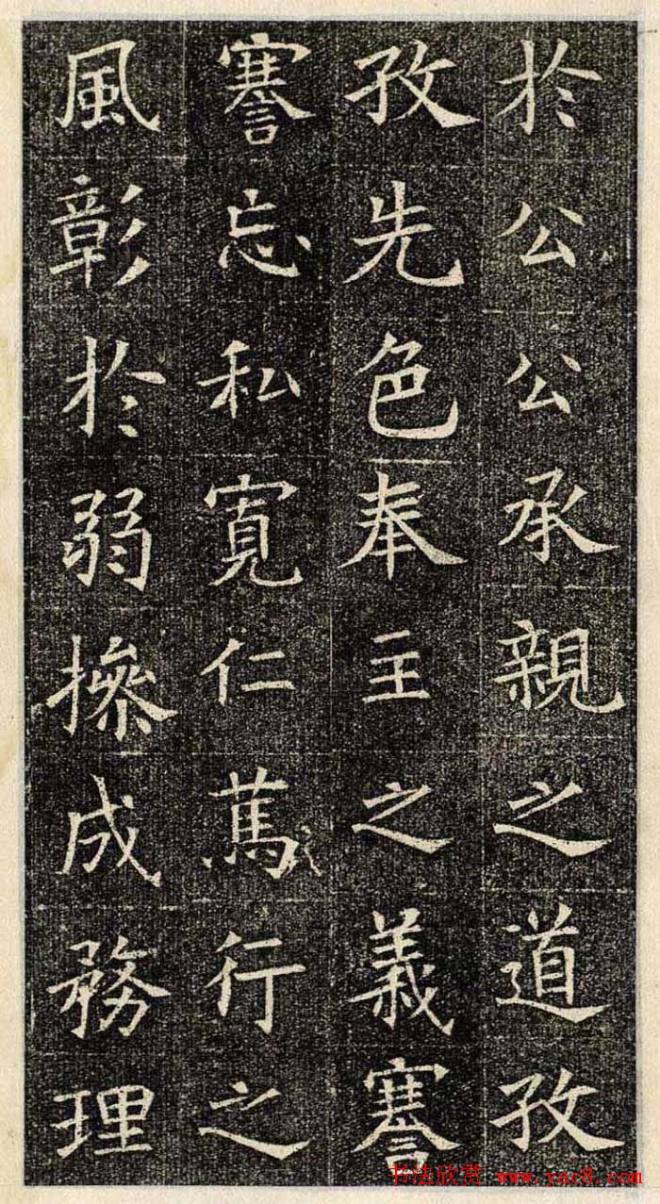 於公公承親之道孜
孜先色奉主之義謇
謇忘私寬仁篤行之
風彰於弱操成務理
书法欣赏 www.yac8.com